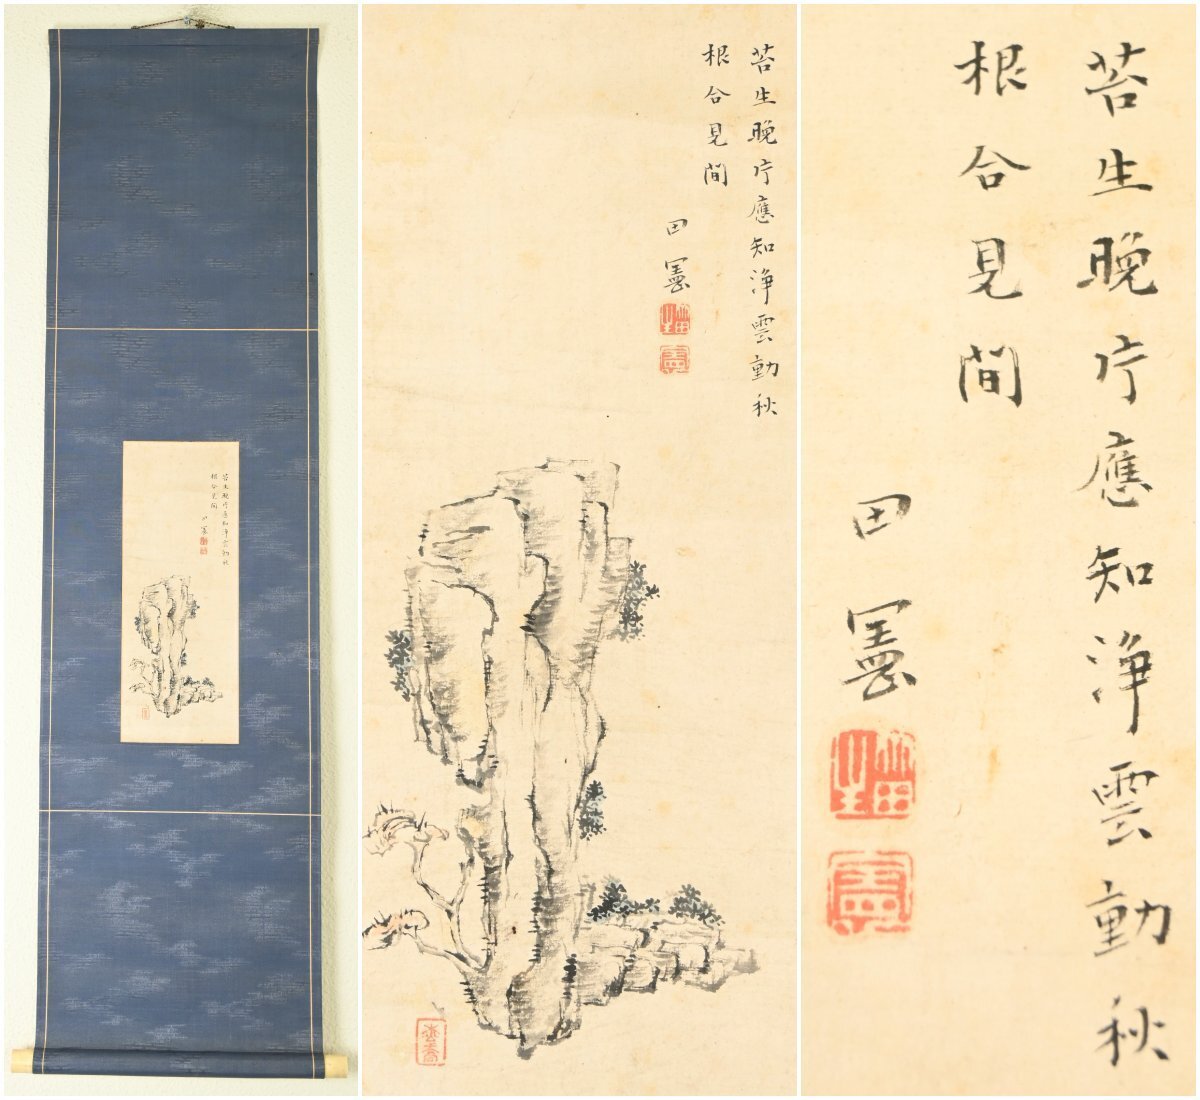 苔生晩庁應知浄雲動秋
根合見間
田憲